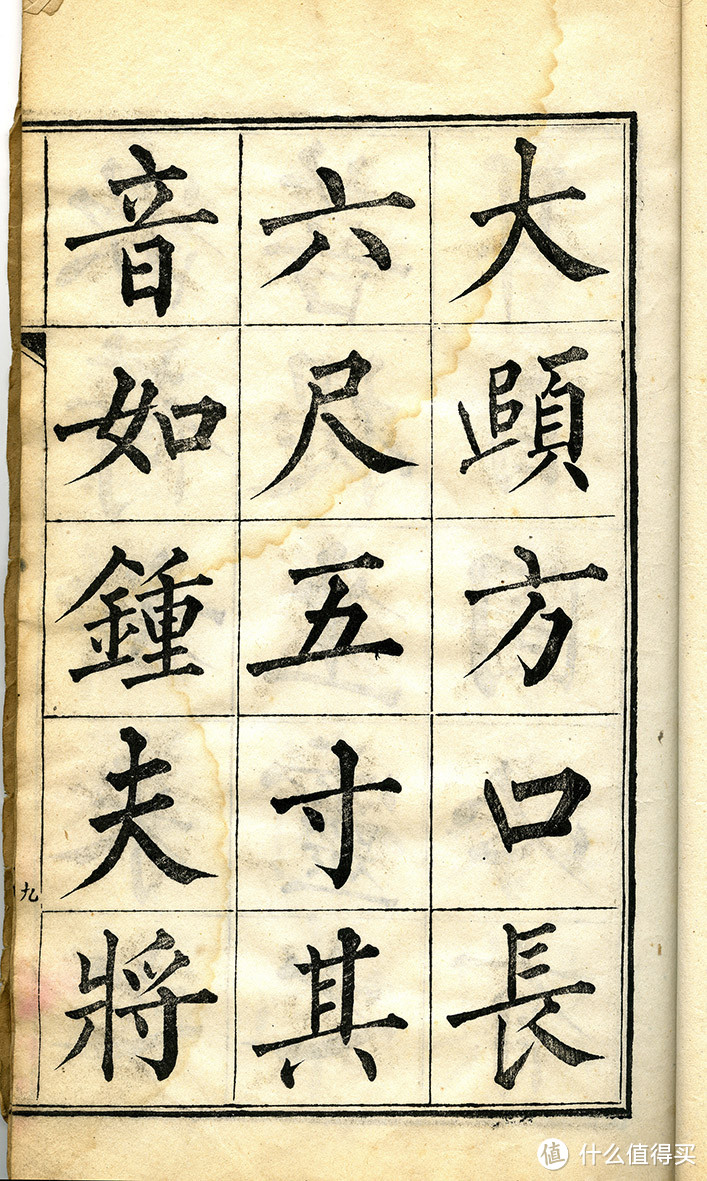 大頤方口長
六尺五寸其
音如鍾夫將
九
值 什么值得买